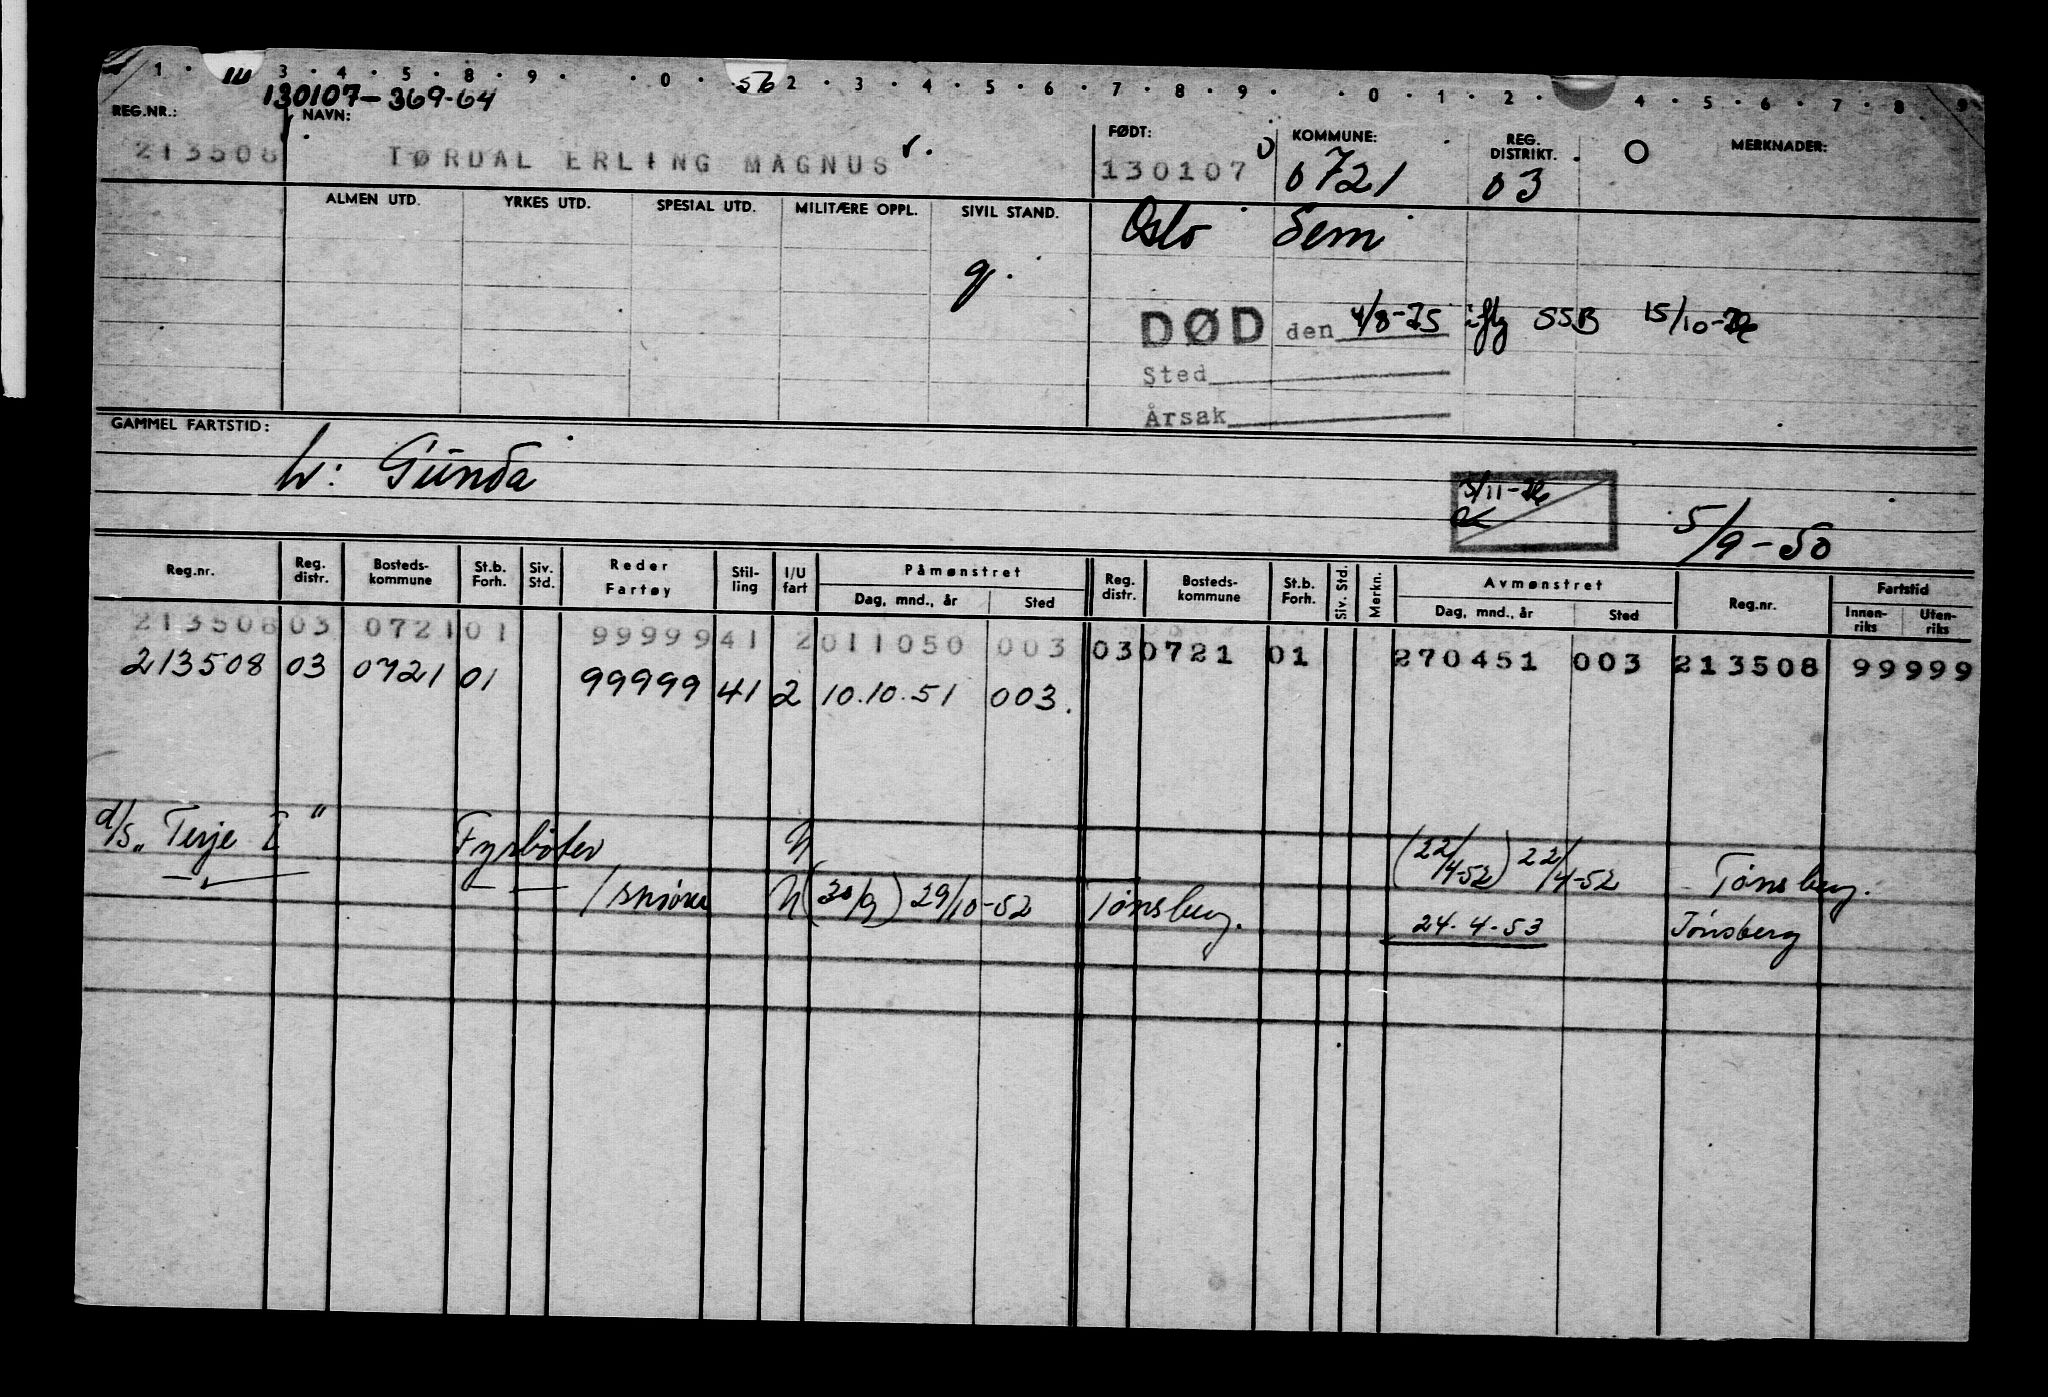 1 · 1U 3 · 4 · 5 · 8 · 9 · · 0 · 56 2 · 3 · 4 · 5 · 6 · 7 · 8 · 9 · · 0 · 1 · 2 · 4 · 5 · 6 · 7 · 8 · 9
130107-369-64
REG.NR.: NAVN: FØDT: KOMMUNE: REG. DISTRIKT. MERKNADER:
213508 TØRDAL ERLING MAGNUS 130107 0721 03
ALMEN UTD. YRKES UTD. SPESIAL UTD. MILITÆRE OPPL. SIVIL STAND.
Oslo Sem
g.
DØD den 4/8-75 iflg SSB 15/10-76
Sted
Årsak
GAMMEL FARTSTID:
h: Gunda
3/11-76
5/9-50
Reg.nr. Reg. distr. Bosteds-kommune St.b. Forh. Siv. Std. Reder Fartøy Stil-ling I/U fart Påmønstret Reg. distr. Bosteds-kommune St.b. Forh. Siv. Std. Merkn. Avmønstret Reg.nr. Fartstid
Dag, mnd., år Sted Dag, mnd., år Sted Innen-riks Uten-riks
213508 03 0721 01 99999 41 2 011050 003 03 0721 01 270451 003 213508 99999
213508 03 0721 01 99999 41 2 10.10.51 003.
d/s „Terje I" Fyrbøter U (22/4-52) 22/4-52 Tønsberg.
— — — / smører U (30/9) 29/10-52 Tønsberg. 24.4.53 Tønsberg